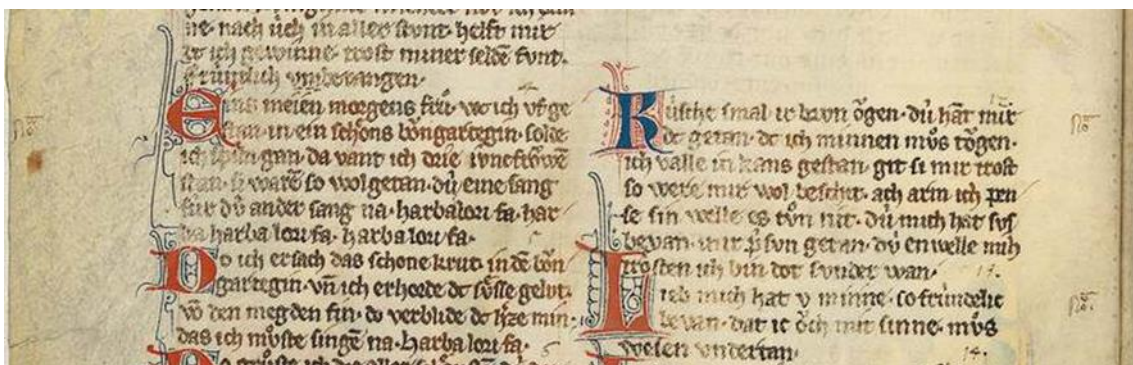 ne · nach uͥch in aller stunt · helft mir
dc ich gewinne · trost miner seldē funt ·
frúntlich vmbevangen ·
Eins meien morgens fru̍ · wc ich vf ge
stan · in ein schoͤns boͮngartegin · solde
ich spiln gan · da vant ich drie iuncfroͮwē
stan · si warē so wol getan · dú eine sang
fúr dú ander sang na · harbalori fa · har
ba harba lori fa · harba lori fa ·
Do ich ersach das schone krut · in dē boͮn
gartegin · vn̄ ich erhorde dc suͤsse gelut ·
vō den megden fin · do verblide dc hͤze min ·
das ich muͦste singē na · harba lori fa ·
Rusche smal ir brvn oͮgen · dú hāt mir
dc getan · dc ich minnen muͦs toͮgen ·
ich valle in kans gestan · git si mir trost
so were mir wol beschir · ach arm ich pen
se sin welle es tuͦn nit · dú mich hat sus
bevan · mir p̄sun getan · dú en welle mich
trosten ich bin dot sunder wan ·
13.
Lieb mich hat v̄ minne · so frúndelic
bevan · dat ic oͮch mit sinne · muͦs
wesen vndertan ·
14.